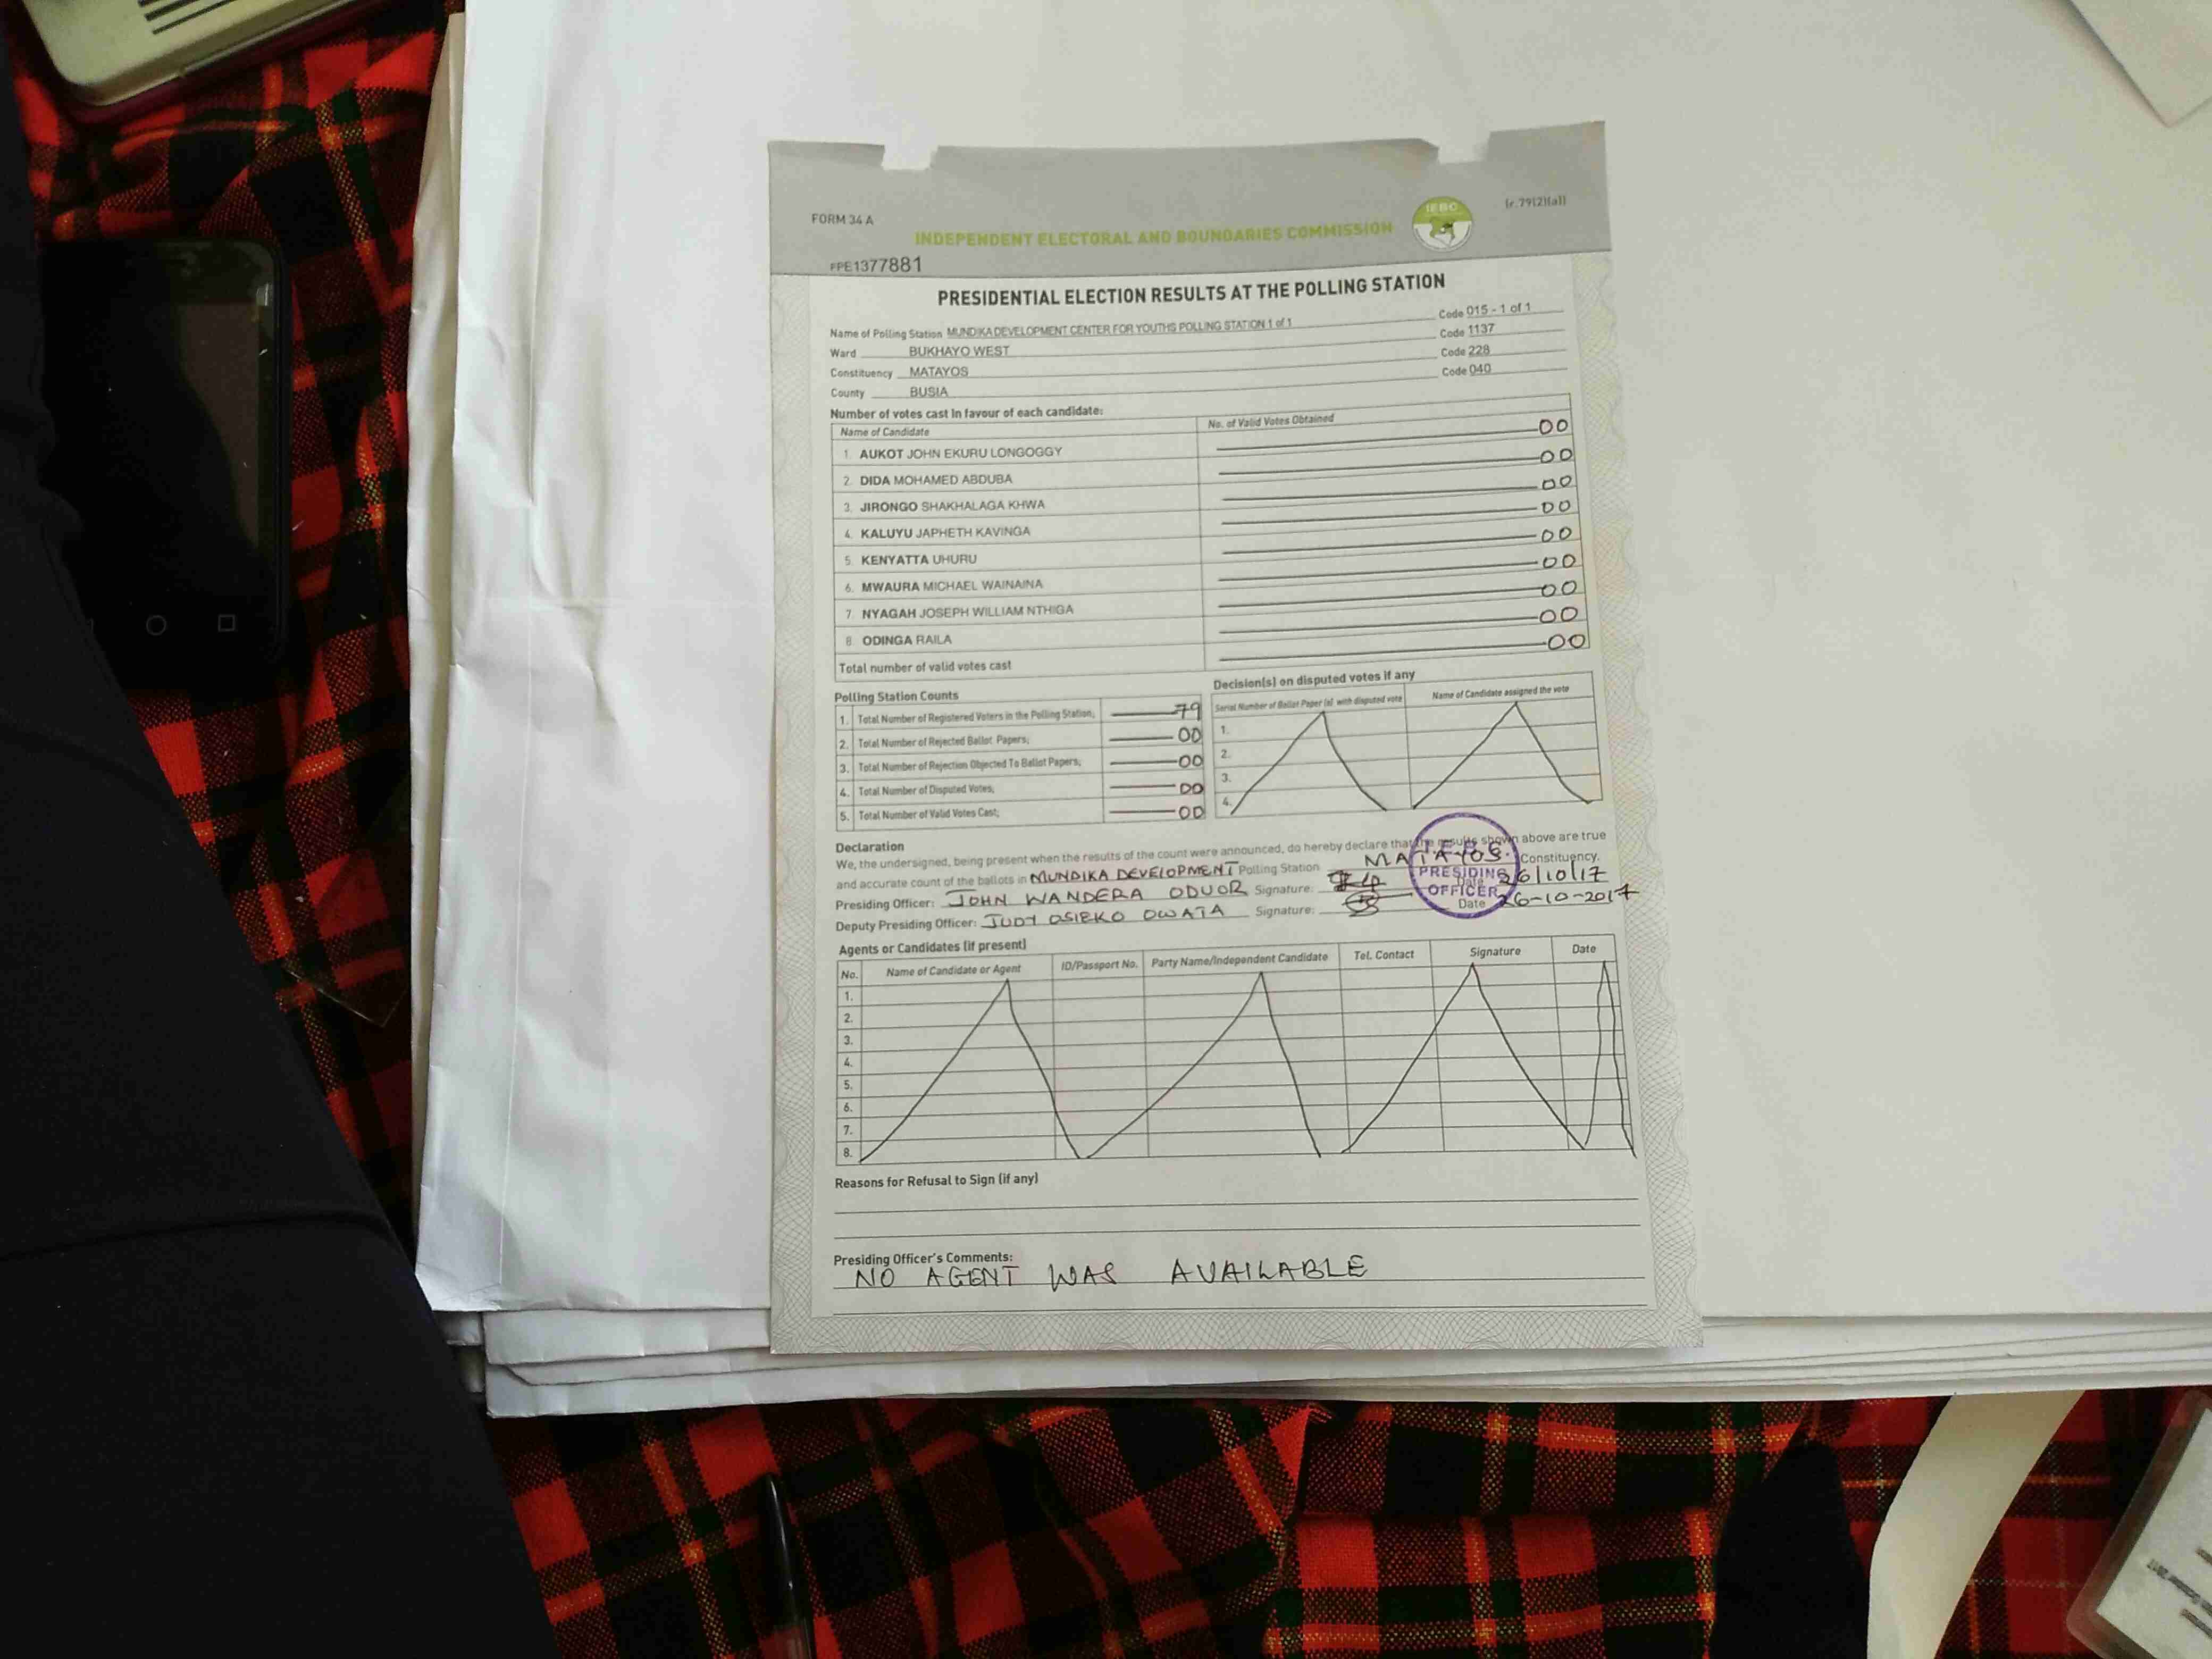 FORM 34 A
(r.79(2)(a))
IEBC
INDEPENDENT ELECTORAL AND BOUNDARIES COMMISSION
FPE1377881
PRESIDENTIAL ELECTION RESULTS AT THE POLLING STATION
Name of Polling Station MUNDIKA DEVELOPMENT CENTER FOR YOUTHS POLLING STATION 1 of 1 Code 015 - 1 of 1
Ward BUKHAYO WEST Code 1137
Constituency MATAYOS Code 228
County BUSIA Code 040
Number of votes cast in favour of each candidate:
Name of Candidate No. of Valid Votes Obtained
1. AUKOT JOHN EKURU LONGOGGY 00
2. DIDA MOHAMED ABDUBA 00
3. JIRONGO SHAKHALAGA KHWA 00
4. KALUYU JAPHETH KAVINGA 00
5. KENYATTA UHURU 00
6. MWAURA MICHAEL WAINAINA 00
7. NYAGAH JOSEPH WILLIAM NTHIGA 00
8. ODINGA RAILA 00
Total number of valid votes cast 00
Polling Station Counts
1. Total Number of Registered Voters in the Polling Station; 79
2. Total Number of Rejected Ballot Papers; 00
3. Total Number of Rejection Objected To Ballot Papers; 00
4. Total Number of Disputed Votes; 00
5. Total Number of Valid Votes Cast; 00
Decision(s) on disputed votes if any
Serial Number of Ballot Paper (s) with disputed vote Name of Candidate assigned the vote
1.
2.
3.
4.
Declaration
We, the undersigned, being present when the results of the count were announced, do hereby declare that the results shown above are true
and accurate count of the ballots in MUNDIKA DEVELOPMENT Polling Station MATAYOS. Constituency.
Presiding Officer: JOHN WANDERA ODUOR Signature: Date 26/10/17
Deputy Presiding Officer: JUDY OSIEKO OWATA Signature: Date 26-10-2017
PRESIDING
OFFICER
Agents or Candidates (if present)
No. Name of Candidate or Agent ID/Passport No. Party Name/Independent Candidate Tel. Contact Signature Date
1.
2.
3.
4.
5.
6.
7.
8.
Reasons for Refusal to Sign (if any)
Presiding Officer's Comments:
NO AGENT WAS AVAILABLE